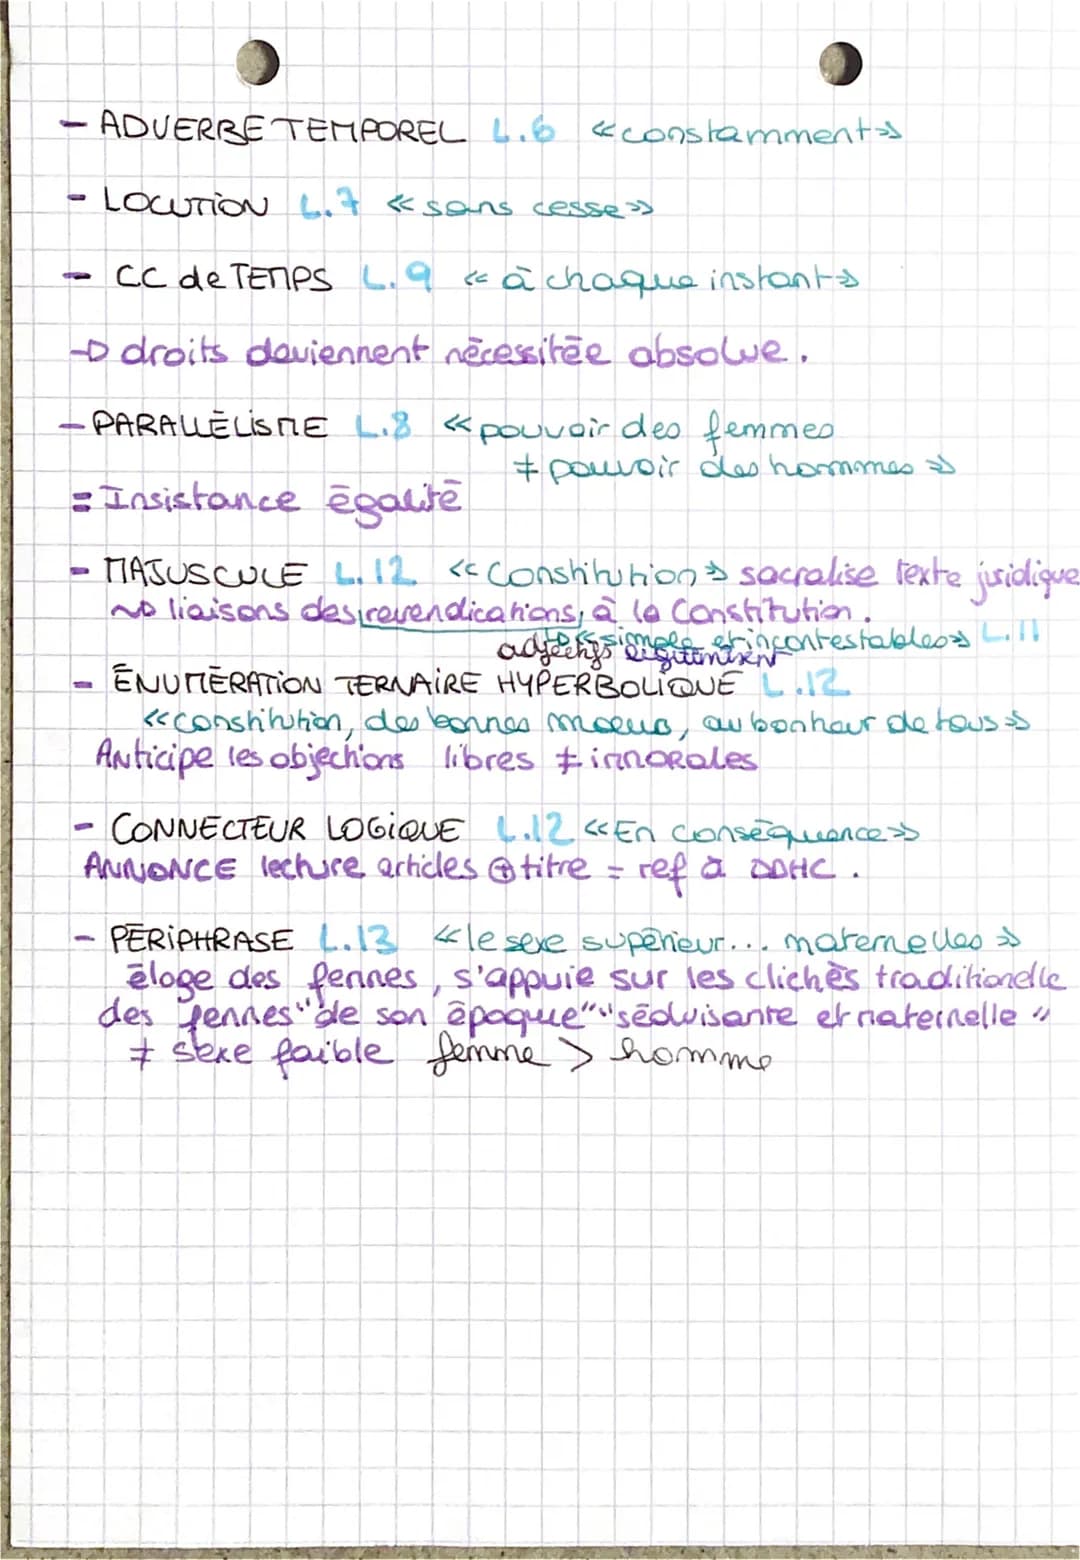 - ADVERBE TEMPOREL L.6 «constamment»
- LOCUTION L.7 «sans cesse»
- CC de TEMPS L.9 «à chaque instant»
→ droits deviennent nécessitée absolue.
- PARALLÉLISME L.8 «pouvoir des femmes
≠ pouvoir des hommes»
= Insistance égalité
- MAJUSCULE L.12 «Constitution» sacralise texte juridique
→ liaisons des revendications, à la Constitution.
«simple et incontestables» L.11
adjectifs légitiment
- ÉNUMÉRATION TERNAIRE HYPERBOLIQUE L.12
«constitution, des bonnes moeurs, au bonheur de tous»
Anticipe les objections libres ≠ immorales
- CONNECTEUR LOGIQUE L.12 «En conséquence»
ANNONCE lecture articles ⊕ titre = ref à DDHC.
- PÉRIPHRASE L.13 «le sexe supérieur... maternelles»
éloge des femmes, s'appuie sur les clichés traditionelle
des femmes "de son époque" "séduisante et maternelle"
≠ sexe faible femme > homme